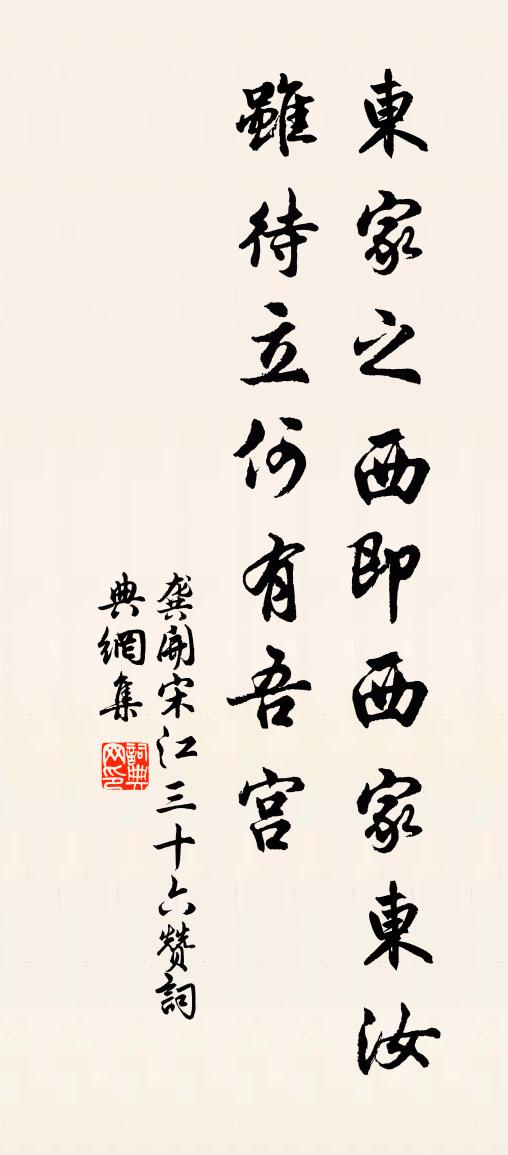 東家之西即西家東汝
雖待立何有吾宫
龔開宋江三十六贊詞
典網集
詞典
网印